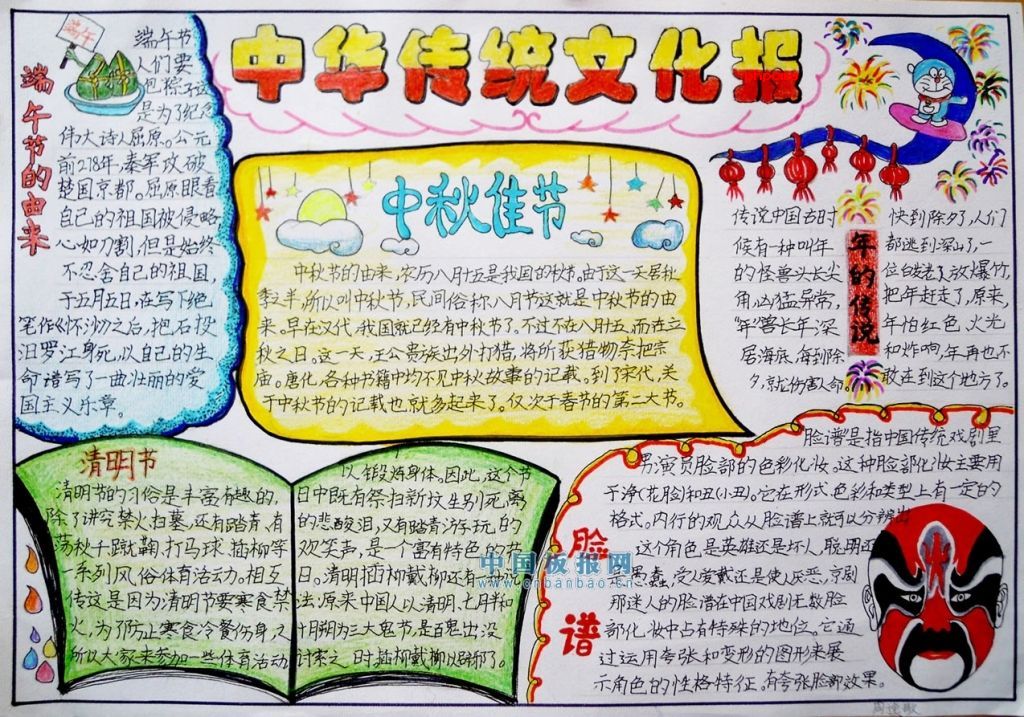 中华传统文化报
端午
端午节的由来
端午节
人们要
包粽子这
是为了纪念
伟大诗人屈原。公元
前278年,秦军攻破
楚国京都。屈原眼看
自己的祖国被侵略
心如刀割,但是始终
不忍舍自己的祖国,
于五月五日,在写下绝
笔作《怀沙》之后,抱石投
汨罗江身死,以自己的生
命谱写了一曲壮丽的爱
国主义乐章。
中秋佳节
中秋节的由来,农历八月十五是我国的秋节。由于这一天居秋
季之半,所以叫中秋节,民间俗称八月节这就是中秋节的由
来。早在汉代,我国就已经有中秋节了。不过不在八月十五,而在立
秋之日。这一天,王公贵族出外打猎,将所获猎物奈把宗
庙。唐化,各种书籍中均不见中秋故事的记载。到了宋代,关
于中秋节的记载也就多起来了。仅次于春节的第二大节。
年的传说
传说中国古时
候有一种叫年
的怪兽头长尖
角,凶猛异常,
“年”兽长年深
居海底,每到除
夕,就伤害人命。
快到除夕了,人们
都逃到深山了,一
放爆竹,
把年赶走了,原来,
年怕红色,火光
和炸响,年再也不
敢在到这个地方了。
清明节
清明节的习俗是丰富有趣的,
除了讲究禁火扫墓,还有踏青,有
荡秋千,蹴鞠,打马球,插柳等
一系列风俗体育活动。相互
传这是因为清明节要寒食禁
火,为了防止寒食冷餐伤身,又
所以大家来参加一些体育活动
以锻炼身体。因此,这个节
日中既有祭扫新坟生别死离
的悲酸泪,又有踏青游玩,的
欢笑声,是一个富有特色的节
日。清明插柳戴柳还有一
法:原来中国人以清明、七月半和
十月朔为三大鬼节,是百鬼出没
讨索之时插柳戴柳以辟邪了。
脸谱
脸谱”是指中国传统戏剧里
男演员脸部的色彩化妆。这种脸部化妆主要用
于净(花脸)和丑(小丑)。它在形式,色彩和类型上有一定的
格式。内行的观众从脸谱上就可以分辨出
这个角色,是英雄还是坏人,聪明还
是愚蠢,受人爱戴还是使人厌恶,京剧
那迷人的脸谱在中国戏剧无数脸
部化妆中占有特殊的地位。它通
过运用夸张和变形的图形来展
示角色的性格特征。有夸张脸部效果。
中国板报网
www.cnbanbao.cn